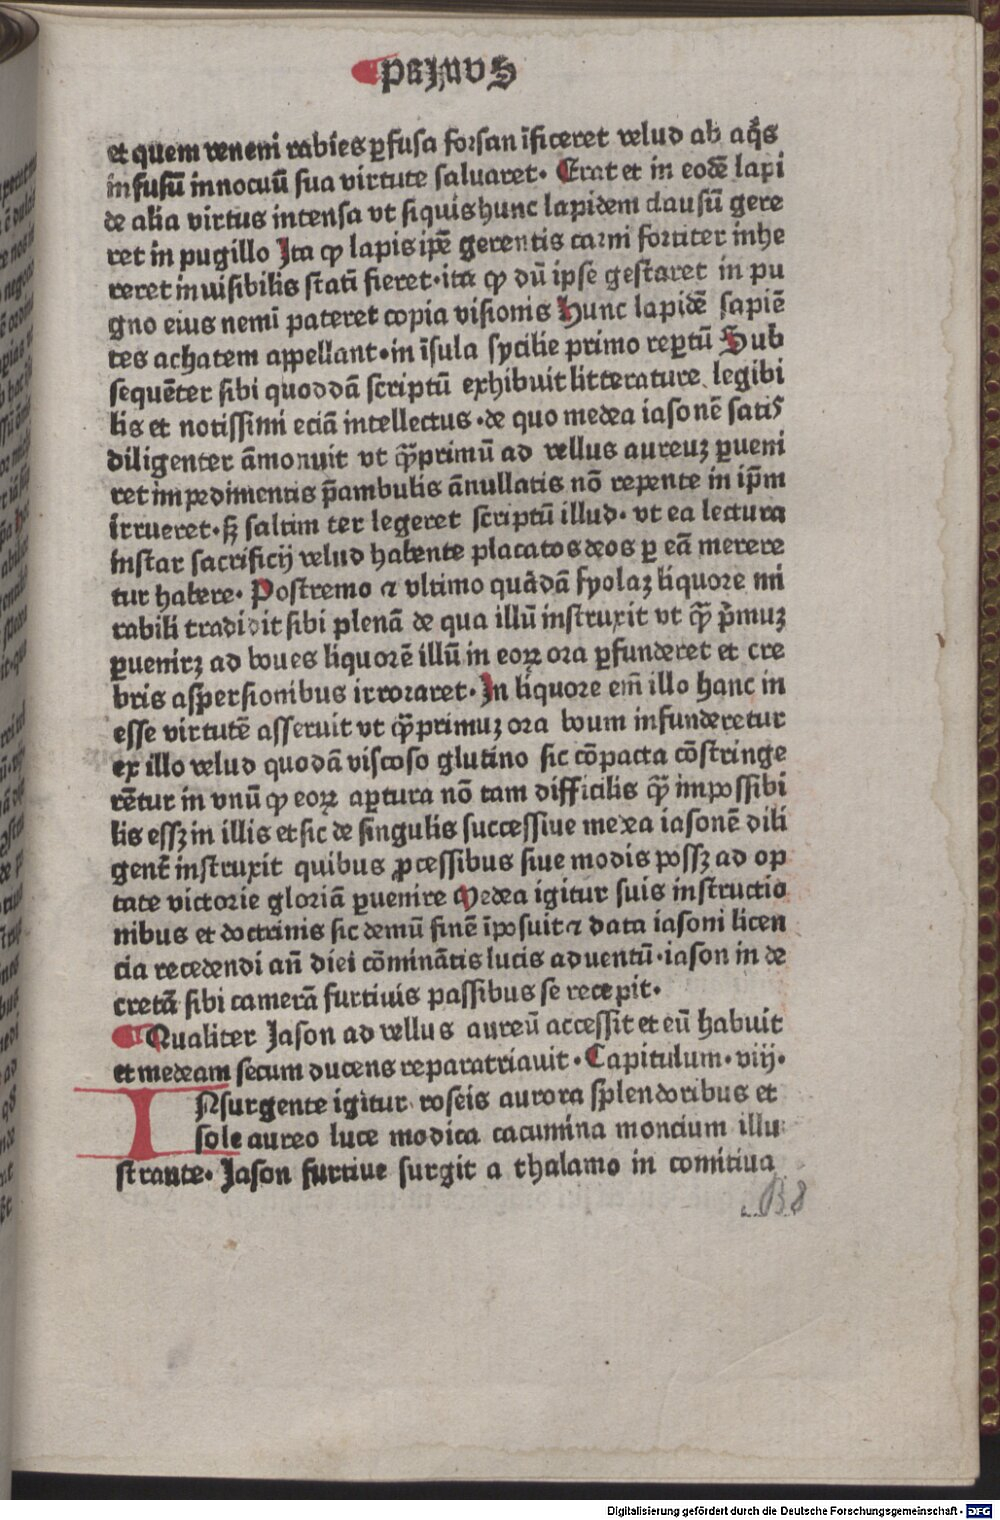 PRIMVS
et quem veneni rabies ꝑfusa forsan īficeret velud ab aq̄s
infusū innocuū sua virtute saluaret· Erat et in eodē lapi
de alia virtus intensa vt siquis hunc lapidem clausū gere
ret in pugillo Ita ꝙ lapis ip̄e gerentis carni fortiter inhe
reret inuisibilis statī fieret·ita ꝙ dū ipse gestaret in pu
gno eius nemī pateret copia visionis Hunc lapidē sapiē
tes achatem appellant·in īsula sycilie primo reꝑtū Sub
sequēter sibi quoddā scriptū exhibuit litterature legibi
lis et notissimi eciā intellectus·de quo medea iasonē satis
diligenter āmonuit vt q̄ꝫprimū ad vellus aureuꝫ ꝑueni
ret impedimentis p̄ambulis ānullatis nō repente in ip̄m
irrueret·sꝫ saltim ter legeret scriptū illud· vt ea lectura
instar sacrificij velud habente placatos deos ꝑ eā merere
tur habere· Postremo ⁊ vltimo quādā fyolaꝫ liquore mi
rabili tradidit sibi plenā de qua illū instruxit vt q̄ꝫ p̄muꝫ
ꝑuenirꝫ ad boues liquorē illū in eoꝝ ora ꝑfunderet et cre
bris aspersionibus irroraret· In liquore em̄ illo hanc in
esse virtutē asseruit vt q̄ꝫprimuꝫ ora boum infunderetur
ex illo velud quodā viscoso glutino sic cōpacta cōstringe
rētur in vnū ꝙ eoꝝ aꝑtura nō tam difficilis q̄ꝫ impossibi
lis essꝫ in illis et sic de singulis successiue medea iasonē dili
gent̄ instruxit quibus ꝓcessibus siue modis possꝫ ad op
tate victorie gloriā ꝑuenire Medea igitur suis instructio
nibus et doctrinis sic demū finē īposuit ⁊ data iasoni licen
cia recedendi an̄ diei cōminātis lucis aduentū·iason in de
cretā sibi camerā furtiuis passibus se recepit·
Qualiter Jason ad vellus aureū accessit et eū habuit
et medeam secum ducens reparatriauit·Capitulum·viij·
INsurgente igitur roseis aurora splendoribus et
sole aureo luce modica cacumina moncium illu
strante· Jason furtiue surgit a thalamo in comitiua
B8
Digitalisierung gefördert durch die Deutsche Forschungsgemeinschaft - DFG